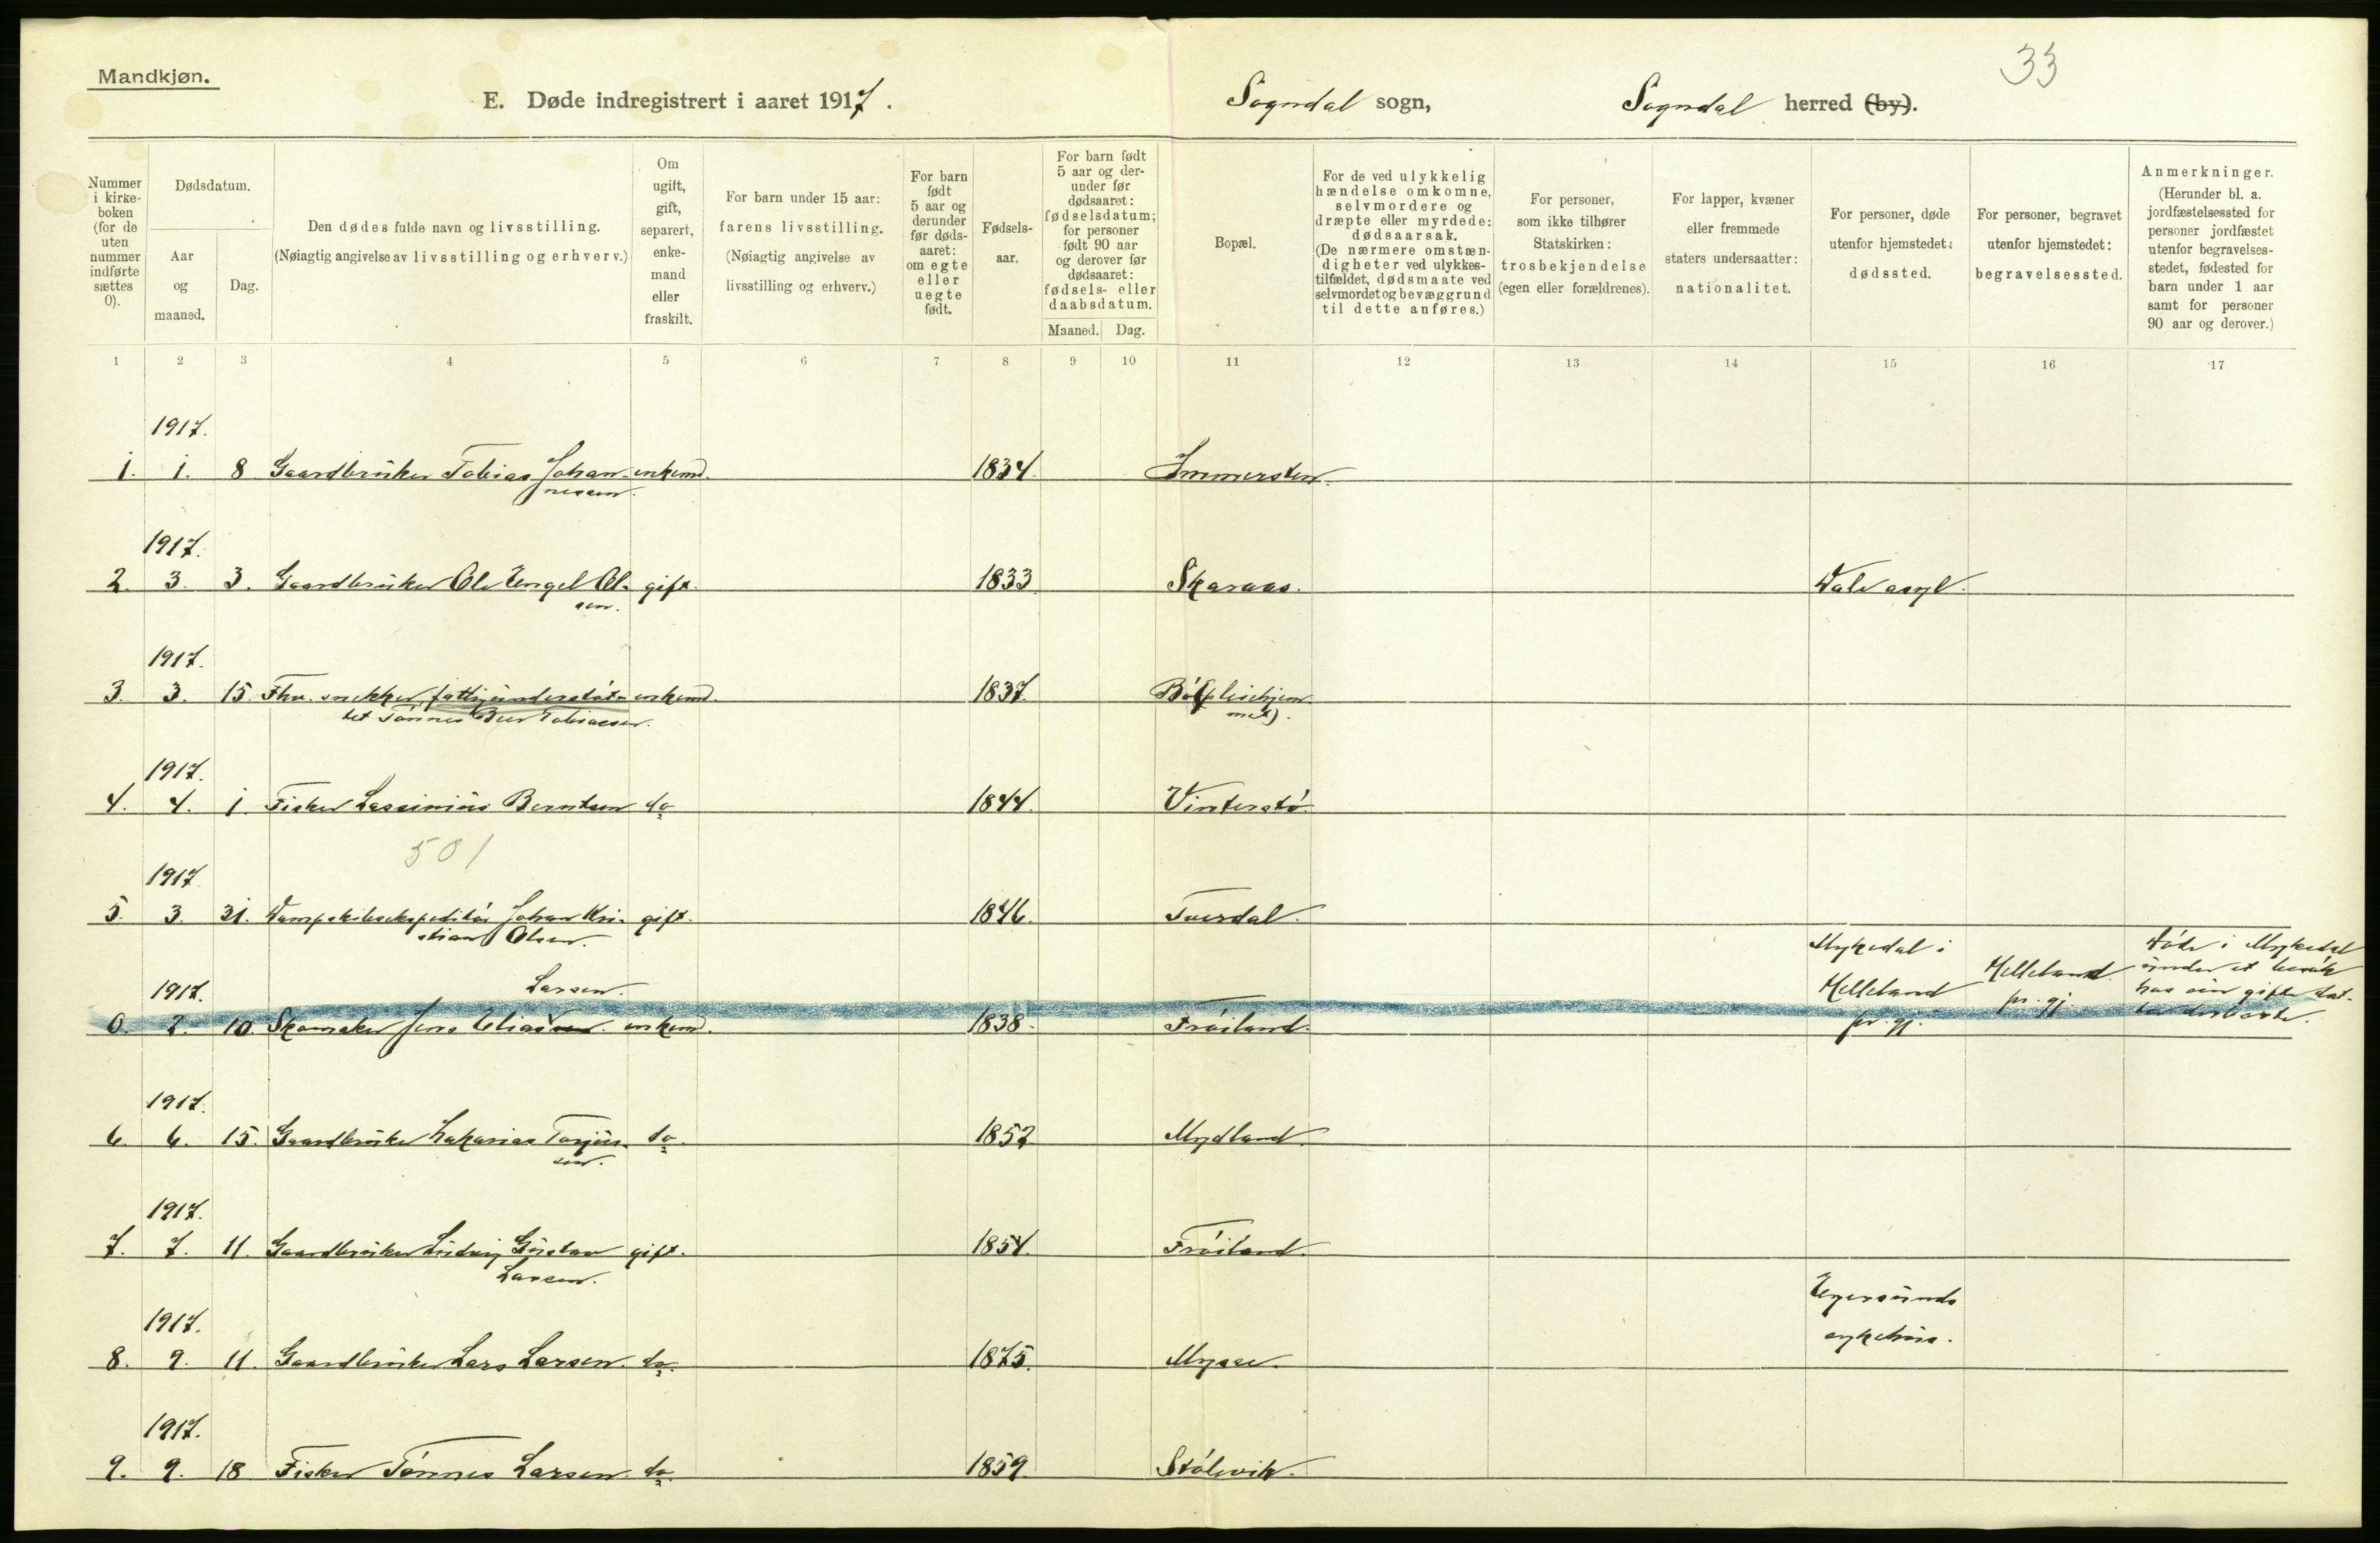 Mandkjøn.
33
E. Døde indregistrert i aaret 1917.
Sogndal sogn,
Sogndal herred (by).
Nummer i kirkeboken (for de uten nummer indførte sættes 0).
Dødsdatum.
Aar og maaned.
Dag.
Den dødes fulde navn og livsstilling.
(Nøiagtig angivelse av livsstilling og erhverv.)
Om ugift, gift, separert, enkemand eller fraskilt.
For barn under 15 aar:
farens livsstilling.
(Nøiagtig angivelse av livsstilling og erhverv.)
For barn født 5 aar og derunder før dødsaaret: om egte eller uegte født.
Fødselsaar.
For barn født 5 aar og derunder før dødsaaret: fødselsdatum; for personer født 90 aar og derover før dødsaaret: fødsels- eller daabsdatum.
Maaned. Dag.
Bopæl.
For de ved ulykkelig hændelse omkomne, selvmordere og dræpte eller myrdede: dødsaarsak. (De nærmere omstændigheter ved ulykkestilfældet, dødsmaate ved selvmordet og bevæggrund til dette anføres.)
For personer, som ikke tilhører Statskirken: trosbekjendelse (egen eller forældrenes).
For lapper, kvæner eller fremmede staters undersaatter: nationalitet.
For personer, døde utenfor hjemstedet: dødssted.
For personer, begravet utenfor hjemstedet: begravelsessted.
Anmerkninger.
(Herunder bl. a. jordfæstelsessted for personer jordfæstet utenfor begravelsesstedet, fødested for barn under 1 aar samt for personer 90 aar og derover.)
1 2 3 4 5 6 7 8 9 10 11 12 13 14 15 16 17
1917.
1. 1. 8 Gaardbruker Tobias Johan- enkemd. 1834. Immersten.
nesen.
1917.
2. 3. 3. Gaardbruker Ole Engel Ol- gift. 1833 Skaraas. Dale asyl.
sen.
1917.
3. 3. 15. Fhv. snekker, fattigunderstøt- enkemd. 1837. Bø (pleiehjem-
tet Tønnes Beer Tobiassen. met).
1917.
4. 4. 1. Fisker Lassinius Berntsen do 1844. Vinterstø.
501
1917
5. 3. 31. Dampskibsekspeditør Johan Kri- gift. 1846. Tuerdal.
stian Olsen.
1917. Larsen.
0. 2. 10. Skomaker Jens Eliassen. enkemd. 1838. Frøiland.
Mykedal i Helleland pr.gj.
Helleland pr.gj.
Døde i Mykedal under et besøk hos sin gifte dat-
1917.
6. 6. 15. Gaardbruker Zakarias Torjus- do. 1852 Mydland.
sen.
1917.
7. 7. 11. Gaardbruker Ludvig Gustav gift. 1854. Frøiland.
Larsen.
1917.
8. 9. 11. Gaardbruker Lars Larsen. do. 1875. Mysse.
Egersunds sykehus.
1917.
9. 9. 18 Fisker Tønnes Larsen. do. 1859. Stølsvik.